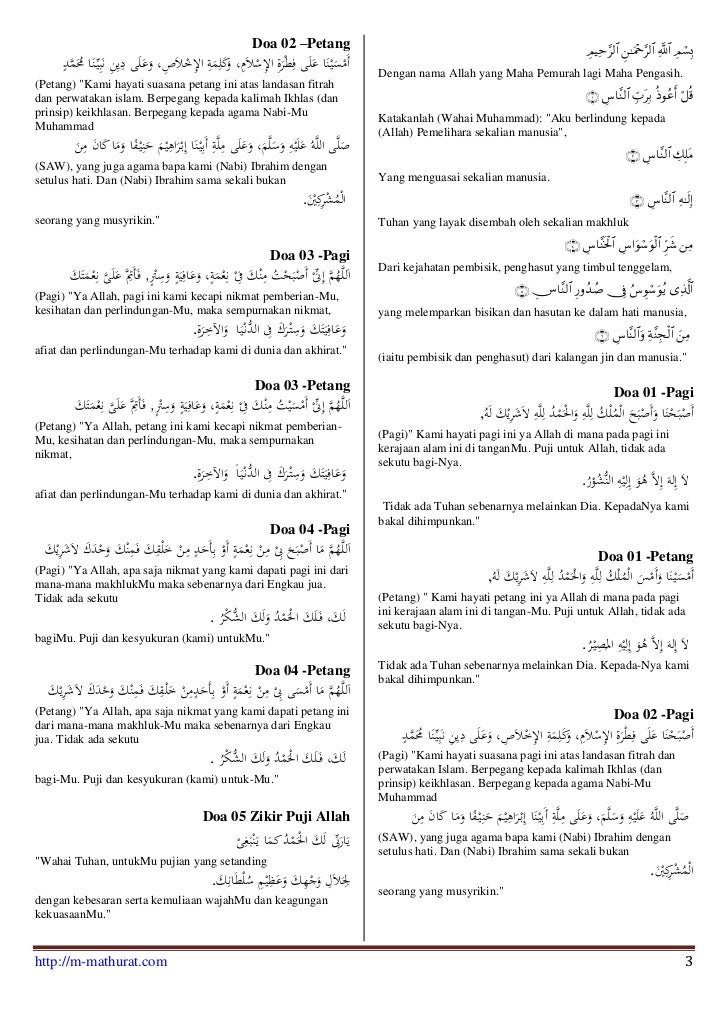 بِسْمِ ٱللَّهِ ٱلرَّحْمَٰنِ ٱلرَّحِيمِ
Dengan nama Allah yang Maha Pemurah lagi Maha Pengasih.
قُلْ أَعُوذُ بِرَبِّ ٱلنَّاسِ ۝١
Katakanlah (Wahai Muhammad): "Aku berlindung kepada
(Allah) Pemelihara sekalian manusia",
مَلِكِ ٱلنَّاسِ ۝٢
Yang menguasai sekalian manusia.
إِلَٰهِ ٱلنَّاسِ ۝٣
Tuhan yang layak disembah oleh sekalian makhluk
مِن شَرِّ ٱلْوَسْوَاسِ ٱلْخَنَّاسِ ۝٤
Dari kejahatan pembisik, penghasut yang timbul tenggelam,
ٱلَّذِى يُوَسْوِسُ فِى صُدُورِ ٱلنَّاسِ ۝٥
yang melemparkan bisikan dan hasutan ke dalam hati manusia,
مِنَ ٱلْجِنَّةِ وَٱلنَّاسِ ۝٦
(iaitu pembisik dan penghasut) dari kalangan jin dan manusia."
Doa 01 -Pagi
أَصْبَحْنَا وَأَصْبَحَ الْمُلْكُ لِلَّهِ وَالْحَمْدُ لِلَّهِ لاَشَرِيْكَ لَهُ,
(Pagi)" Kami hayati pagi ini ya Allah di mana pada pagi ini
kerajaan alam ini di tanganMu. Puji untuk Allah, tidak ada
sekutu bagi-Nya.
لاَ إِلهَ إِلاَّ هُوَ إِلَيْهِ النُّشُوْرُ.
Tidak ada Tuhan sebenarnya melainkan Dia. KepadaNya kami
bakal dihimpunkan."
Doa 01 -Petang
أَمْسَيْنَا وَأَمْسَ الْمُلْكُ لِلَّهِ وَالْحَمْدُ لِلَّهِ لاَشَرِيْكَ لَهُ,
(Petang) " Kami hayati petang ini ya Allah di mana pada pagi
ini kerajaan alam ini di tangan-Mu. Puji untuk Allah, tidak ada
sekutu bagi-Nya.
لاَ إِلهَ إِلاَّ هُوَ إِلَيْهِ المَصِيْرُ.
Tidak ada Tuhan sebenarnya melainkan Dia. Kepada-Nya kami
bakal dihimpunkan."
Doa 02 -Pagi
أَصْبَحْنَا عَلَى فِطْرَةِ الإِسْلاَمِ، وَكَلِمَةِ الإِخْلاَصِ، وَعَلَى دِينِ نَبِيِّنَا مُحَمَّدٍ
(Pagi) "Kami hayati suasana pagi ini atas landasan fitrah dan
perwatakan Islam. Berpegang kepada kalimah Ikhlas (dan
prinsip) keikhlasan. Berpegang kepada agama Nabi-Mu
Muhammad
صَلَّى اللَّهُ عَلَيْهِ وَسَلَّمَ، وَعَلَى مِلَّةِ أَبِيْنَا إِبْرَاهِيْمَ حَنِيْفًا وَمَا كَانَ مِنَ
(SAW), yang juga agama bapa kami (Nabi) Ibrahim dengan
setulus hati. Dan (Nabi) Ibrahim sama sekali bukan
الْمُشْرِكِيْنَ.
seorang yang musyrikin."
Doa 02 –Petang
أَمْسَيْنَا عَلَى فِطْرَةِ الإِسْلاَمِ، وَكَلِمَةِ الإِخْلاَصِ، وَعَلَى دِينِ نَبِيِّنَا مُحَمَّدٍ
(Petang) "Kami hayati suasana petang ini atas landasan fitrah
dan perwatakan islam. Berpegang kepada kalimah Ikhlas (dan
prinsip) keikhlasan. Berpegang kepada agama Nabi-Mu
Muhammad
صَلَّى اللَّهُ عَلَيْهِ وَسَلَّمَ، وَعَلَى مِلَّةِ أَبِيْنَا إِبْرَاهِيْمَ حَنِيْفًا وَمَا كَانَ مِنَ
(SAW), yang juga agama bapa kami (Nabi) Ibrahim dengan
setulus hati. Dan (Nabi) Ibrahim sama sekali bukan
الْمُشْرِكِيْنَ.
seorang yang musyrikin."
Doa 03 -Pagi
اَللَّهُمَّ إِنِّيْ أَصْبَحْتُ مِنْكَ فِيْ نِعْمَةٍ، وَعَافِيَةٍ وَسِتْرٍ, فَأَتِمَّ عَلَيَّ نِعْمَتَكَ
(Pagi) "Ya Allah, pagi ini kami kecapi nikmat pemberian-Mu,
kesihatan dan perlindungan-Mu, maka sempurnakan nikmat,
وَعَافِيَتَكَ وَسِتْرَكَ فِي الدُّنْيَا وَالآخِرَةِ.
afiat dan perlindungan-Mu terhadap kami di dunia dan akhirat."
Doa 03 -Petang
اَللَّهُمَّ إِنِّيْ أَمْسَيْتُ مِنْكَ فِيْ نِعْمَةٍ، وَعَافِيَةٍ وَسِتْرٍ, فَأَتِمَّ عَلَيَّ نِعْمَتَكَ
(Petang) "Ya Allah, petang ini kami kecapi nikmat pemberian-
Mu, kesihatan dan perlindungan-Mu, maka sempurnakan
nikmat,
وَعَافِيَتَكَ وَسِتْرَكَ فِي الدُّنْيَا وَالآخِرَةِ.
afiat dan perlindungan-Mu terhadap kami di dunia dan akhirat."
Doa 04 -Pagi
اَللَّهُمَّ مَا أَصْبَحَ بِيْ مِنْ نِعْمَةٍ أَوْ بِأَحَدٍ مِنْ خَلْقِكَ فَمِنْكَ وَحْدَكَ لاَشَرِيْكَ
(Pagi) "Ya Allah, apa saja nikmat yang kami dapati pagi ini dari
mana-mana makhlukMu maka sebenarnya dari Engkau jua.
Tidak ada sekutu
لَكَ، فَلَكَ الْحَمْدُ وَلَكَ الشُّكْرُ .
bagiMu. Puji dan kesyukuran (kami) untukMu."
Doa 04 -Petang
اَللَّهُمَّ مَا أَمْسَى بِيْ مِنْ نِعْمَةٍ أَوْ بِأَحَدٍمِنْ خَلْقِكَ فَمِنْكَ وَحْدَكَ لاَشَرِيْكَ
(Petang) "Ya Allah, apa saja nikmat yang kami dapati petang ini
dari mana-mana makhluk-Mu maka sebenarnya dari Engkau
jua. Tidak ada sekutu
لَكَ، فَلَكَ الْحَمْدُ وَلَكَ الشُّكْرُ .
bagi-Mu. Puji dan kesyukuran (kami) untuk-Mu."
Doa 05 Zikir Puji Allah
يَارَبِّي لَكَ الْحَمْدُ كَمَا يَنْبَغِيْ
"Wahai Tuhan, untukMu pujian yang setanding
لِجَلاَلِ وَجْهِكَ وَعَظِيْمِ سُلْطَانِكَ.
dengan kebesaran serta kemuliaan wajahMu dan keagungan
kekuasaanMu."
http://m-mathurat.com
3